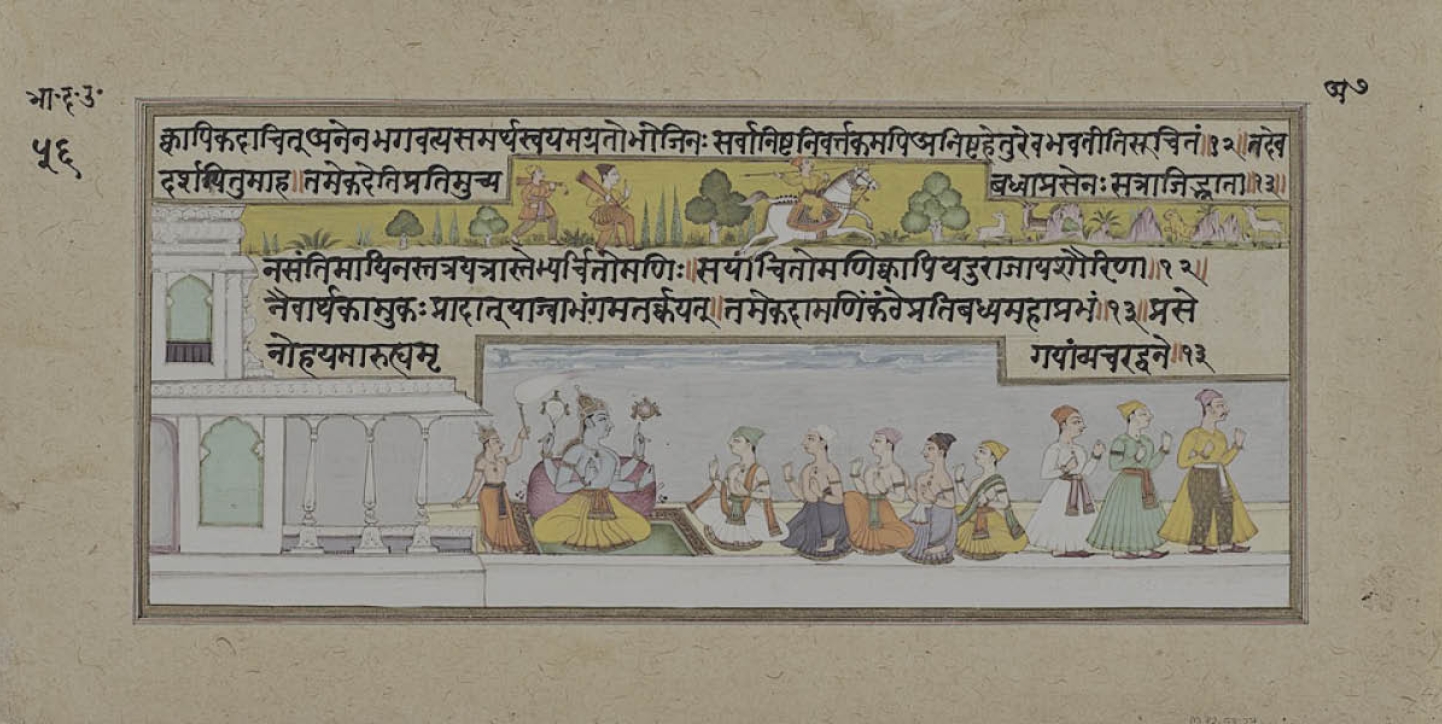 भा·द·उ·
५६
अ ७
क्वापिकदाचित्अनेनभगवत्यसमर्थस्वयमग्रतोभोजिनः सर्वानिष्टनिवर्त्तकमपिअनिष्टहेतुरेवभवतीतिसूचितं॥१२॥तदेव
दर्शयितुमाह॥तमेकदेतिप्रतिमुच्य बध्वाप्रसेनः सत्राजिद्भ्राता॥१३॥
नसंतिमायिनस्तत्रयत्रास्तेभ्यर्चितोमणिः॥सयाचितोमणिंक्वापियदुराजायशौरिणा॥१२॥
नैवार्थकामुकः प्रादात्याञ्चाभंगमतर्कयत्॥तमेकदामणिंकंठेप्रतिबध्यमहाप्रभं॥१३॥प्रसे
नोहयमारुत्द्यमृ गयांव्यचरद्वने॥१३